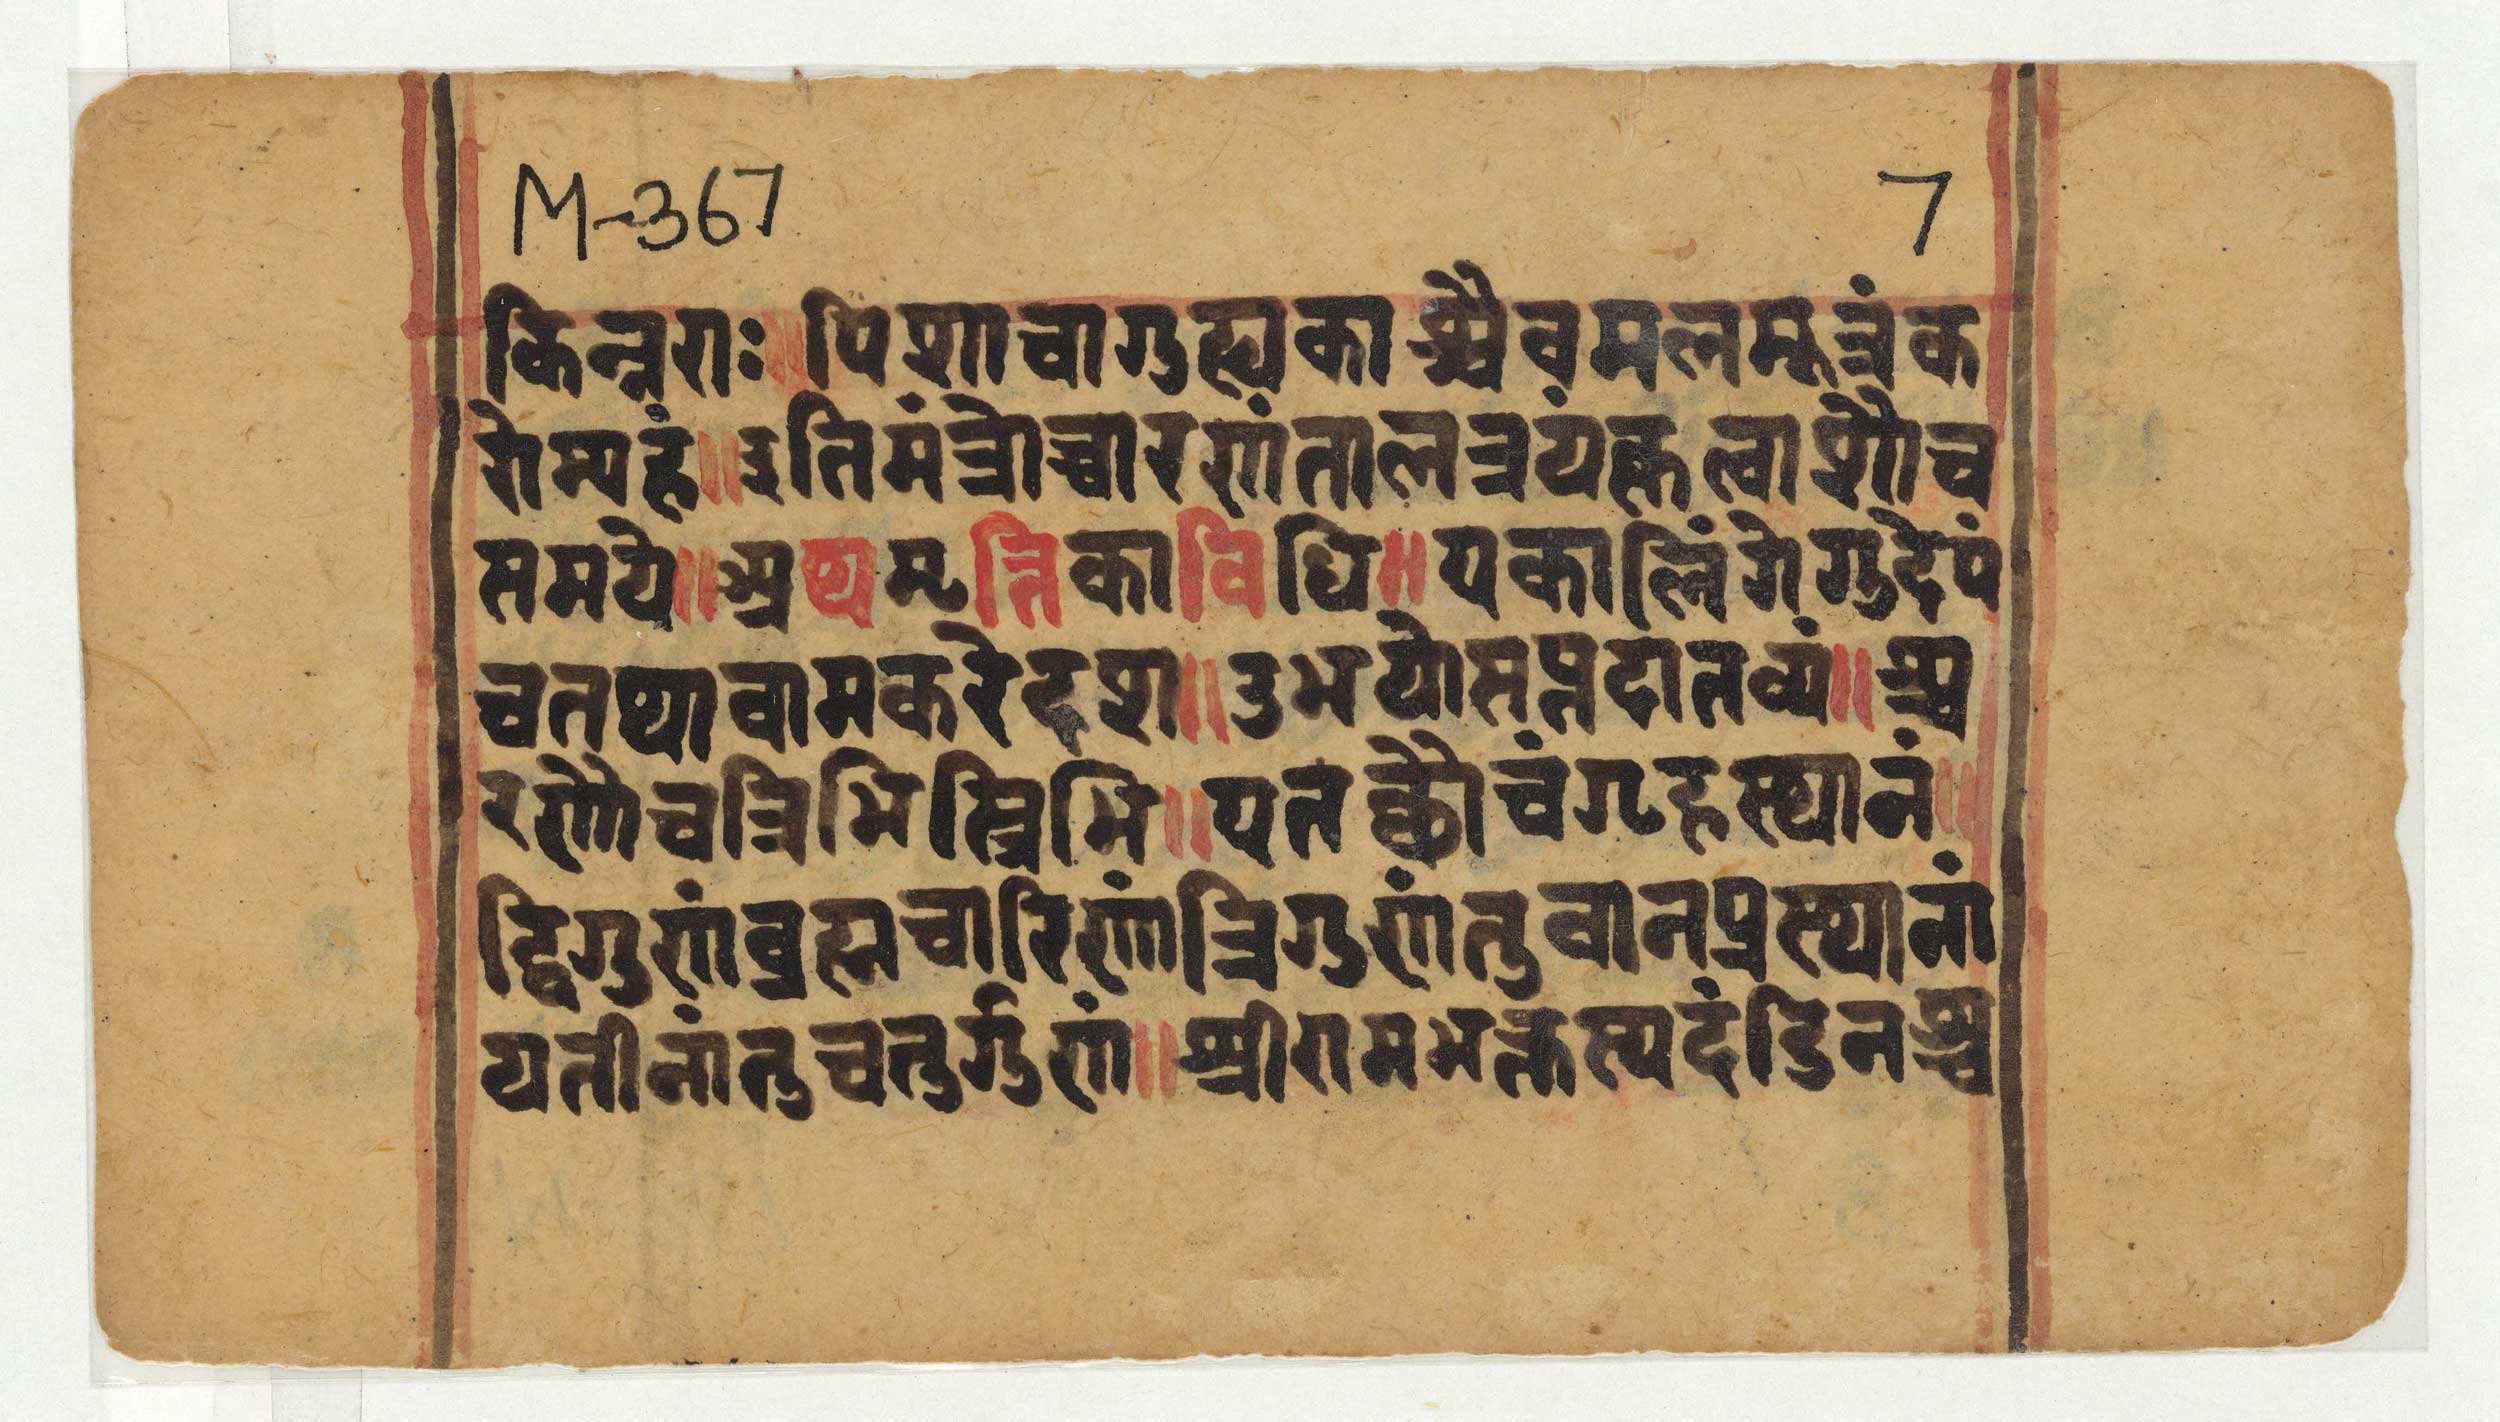 M-367
7
किन्नराः॥पिशाचागुह्यकाश्चैवमलमूत्रंक
रोम्यहं॥इतिमंत्रोच्चारणंतालत्रयंकृत्वाशौच
समये॥अथमृत्तिकाविधि॥यकालिंगेगुदेपं
चतथावामकरेदश॥उभयोसप्तदातव्यं॥च
रणौचत्रिभिस्त्रिभि॥यतछौचंगृहस्थानं॥
द्विगुणंब्रह्मचारिणांत्रिगुणंतुवानप्रस्थानां
यतीनांतुचतुर्गुणं॥श्रीरामभक्तस्यदंडिनश्च